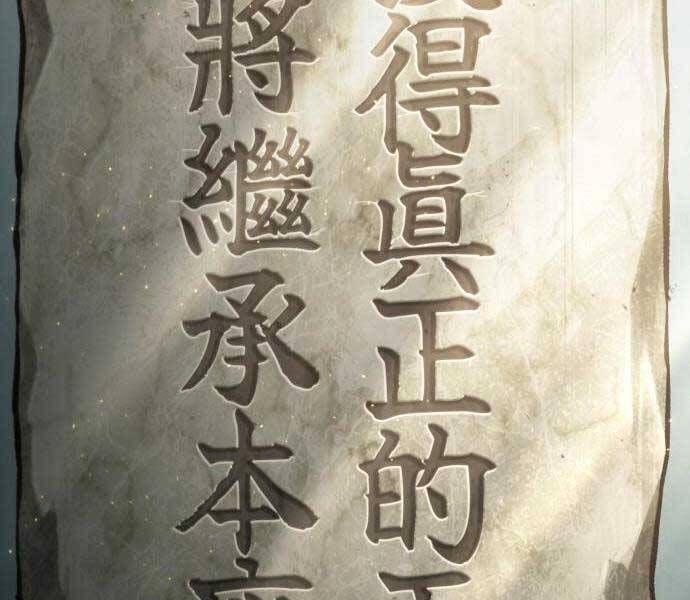 得眞正的
將繼承本